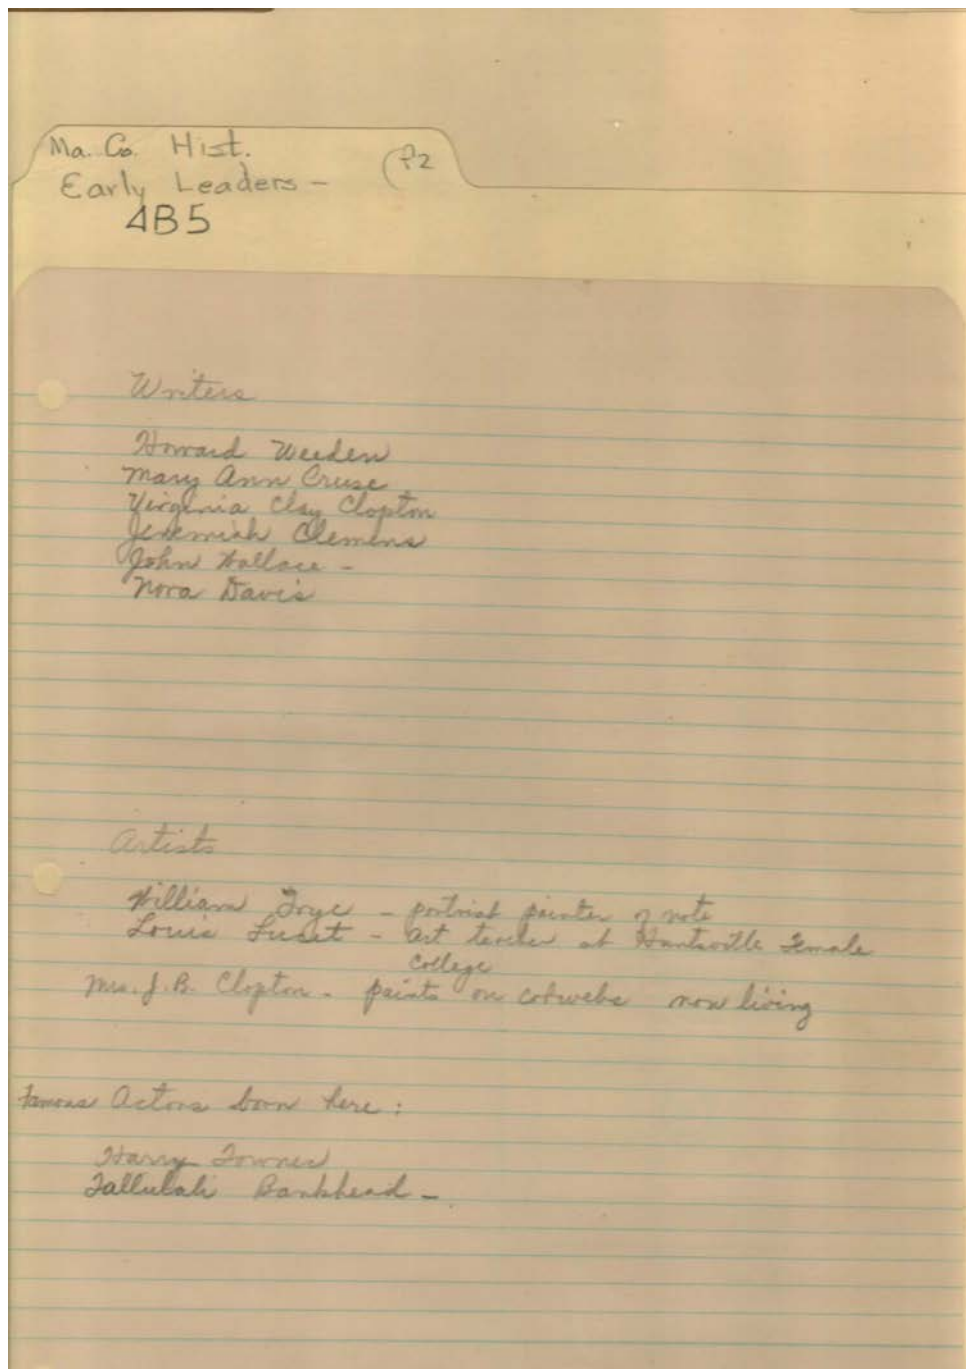 Ma. Co. Hist. (P2
Early Leaders -
4B5
Writers
Howard Weeden
Mary Ann Cruse
Virginia Clay Clopton
Jeremiah Clemens
John Wallace -
Nora Davis
Artists
William Frye - portrait painter of note
Louis - art teacher at Huntsville Female
College
Mrs. J. B. Clopton - paints on cobwebs now living
Famous Actors born here:
Harry Townes
Tallulah Bankhead -